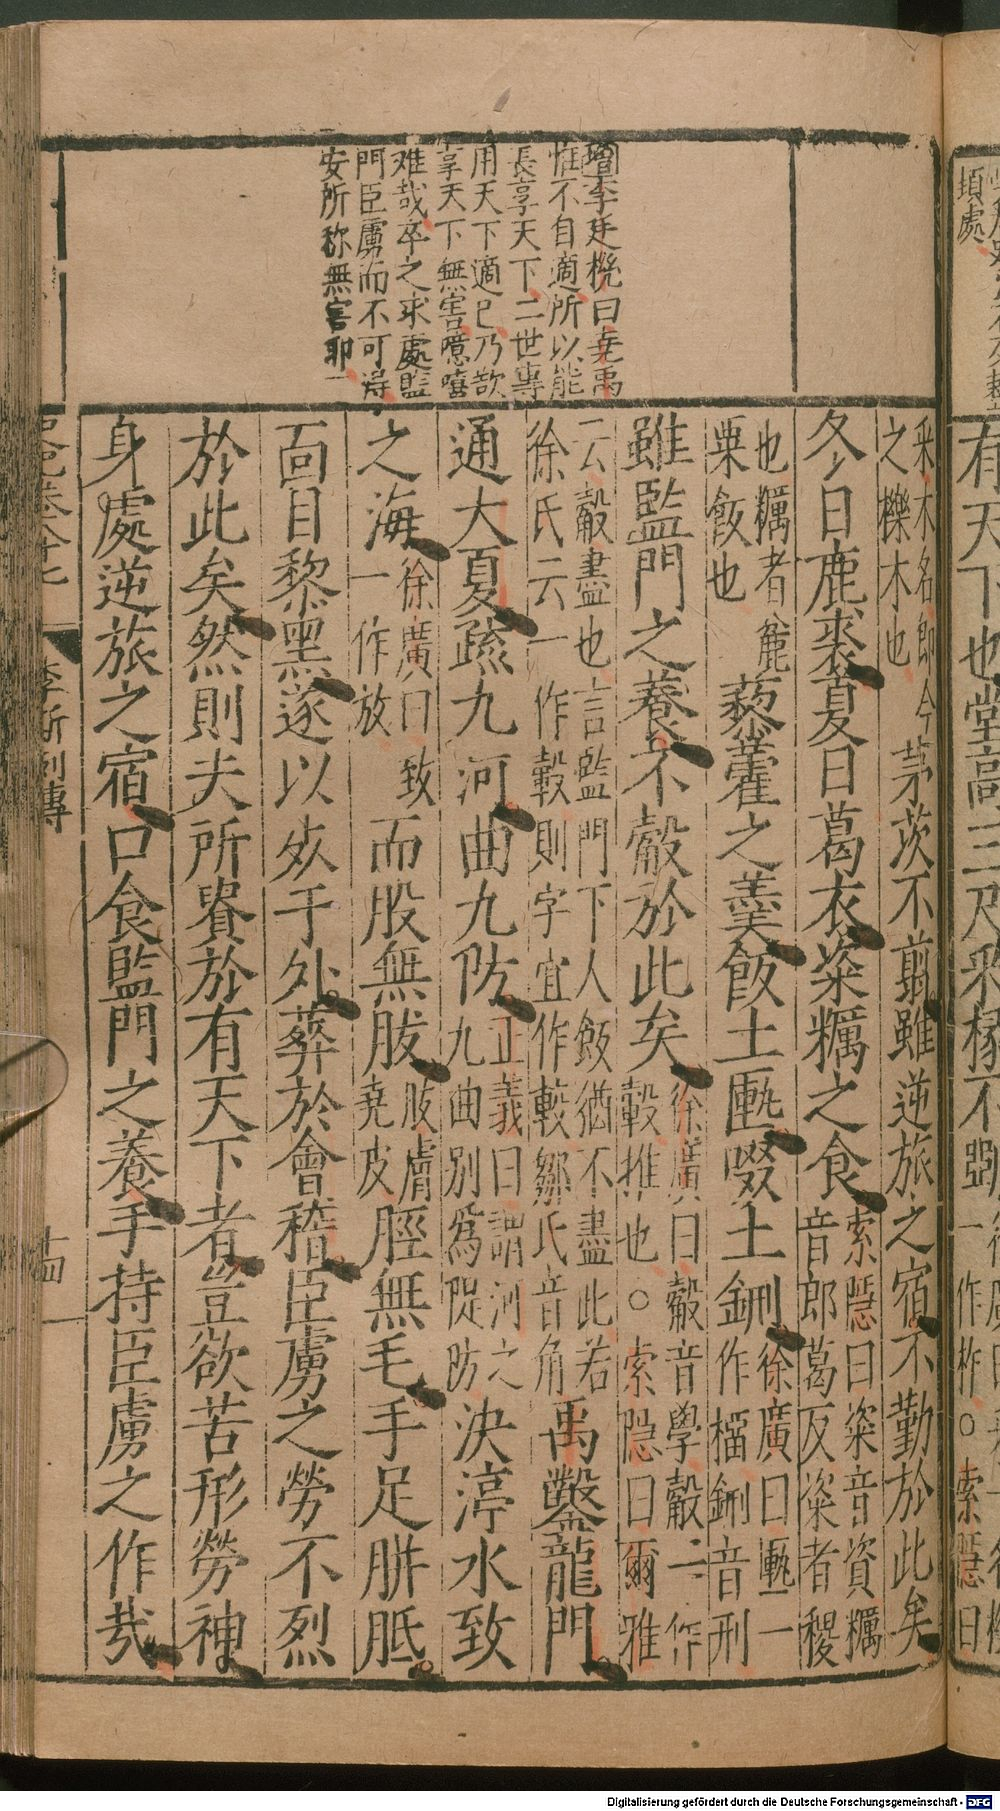 增李廷機曰堯禹
惟不自適所以能
長享天下二世專
用天下適己乃欲
享天下無害噫嘻
难哉卒之求處監
門臣虜而不可得
安所称無害耶
采木名即今
之櫟木也
茅茨不翦雖逆旅之宿不勤於此矣
冬日鹿裘夏日葛衣粢糲之食
索隱曰粢音資糲
音郎葛反粢者稷
也糲者麄
粟飯也
藜藿之羹飯土匭啜土鉶
徐廣曰匭一
作橊鉶音刑
雖監門之養不觳於此矣
徐廣曰觳音學觳一作
㲉推也○索隱曰爾雅
云觳盡也言監門下人飯猶不盡此若
徐氏云一作㲉則字宜作較鄒氏音角
禹鑿龍門
通大夏疏九河曲九防
正義曰謂河之
九曲別爲隄防
決渟水致
之海
徐廣曰致
一作放
而股無胈
胈膚
毳皮
脛無毛手足胼胝
面目黎黑遂以死于外葬於會稽臣虜之勞不烈
於此矣然則夫所貴於有天下者豈欲苦形勞神
身處逆旅之宿口食監門之養手持臣虜之作哉
李斯列傳
十四
Digitalisierung gefördert durch die Deutsche Forschungsgemeinschaft - DFG